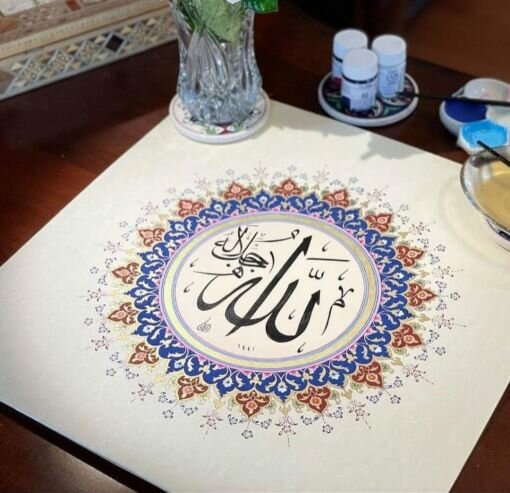 الله
جل جلاله
١٤٤١